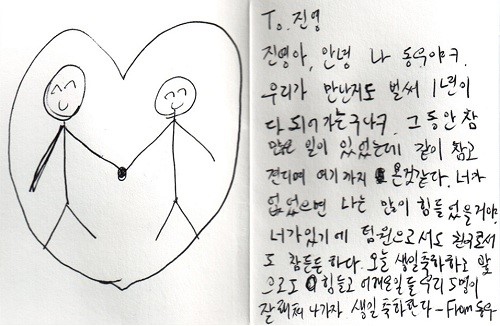 To. 진영
진영아, 안녕 나 동우야ㅋ.
우리가 만난지도 벌써 1년이
다 되어 가는구나ㅋ. 그 동안 참
많은 일이 있었는데 같이 참고
견디며 여기까지 온것같다. 너가
없었으면 나는 많이 힘들었을거야.
너가있기에 팀원으로서도 친구로서
도 참든든하다. 오늘 생일축하하고 앞
으로도 힘들고 어려운일들 우리 5명이
잘 헤쳐 나가자 생일 축하한다 - From 동우